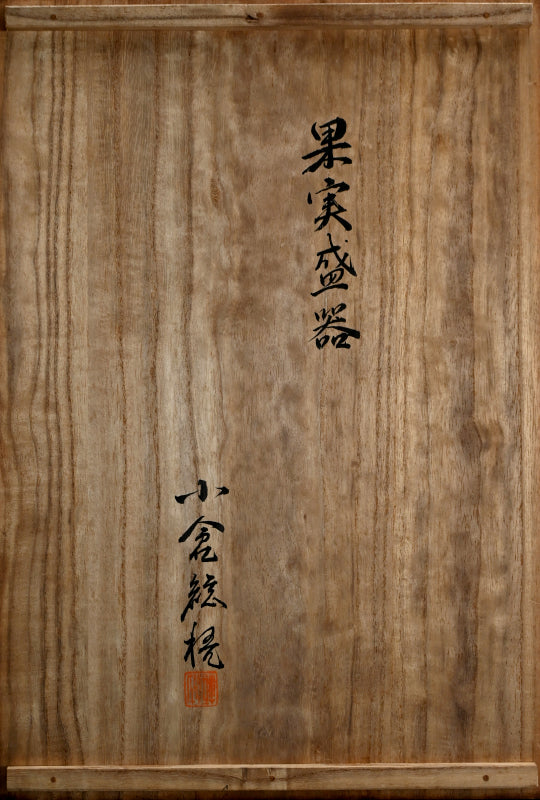 果実盛器
小倉総